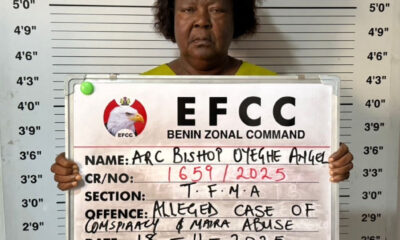 5'0" 5'0"
4'9" 4'9"
4'6" 4'6"
4'3" 4'3"
4'0" 4'0"
EFCC
EFCC
BENIN ZONAL COMMAND
3'9" 3'9"
NAME: ARC BISHOP OYEGHE ANGEL
3'6" 3'6"
CR/NO: 1659/2025
3'3" 3'3"
SECTION: T.F.M.A
OFFENCE: ALLEGED CASE OF
CONSPIRACY & NAIRA ABUSE
2'9" 2'9"
DATE: 18-11-2025